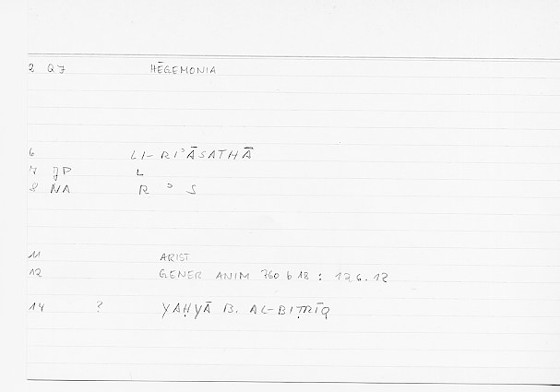 2 QJ HĒGEMONIA
6 LI-RIʾĀSATHĀ
7 JP L
8 NA R ʾ S
11 ARIST
12 GENER ANIM 760 b 18 : 126.12
14 ? YAḤYĀ B. AL-BIṬRĪQ